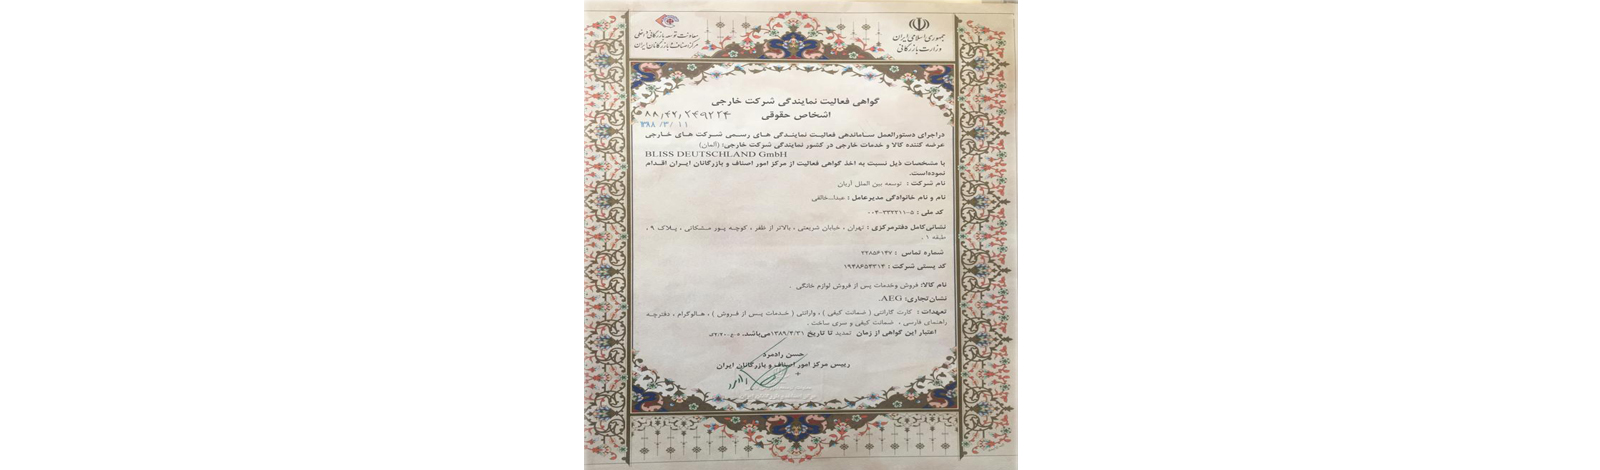 جمهوری اسلامی ایران
وزارت بازرگانی
معاونت توسعه بازرگانی داخلی
مرکز اصناف و بازرگانان ایران
گواهی فعالیت نمایندگی شرکت خارجی
اشخاص حقوقی
دراجرای دستورالعمل ساماندهی فعالیت نمایندگی های رسمی شرکت های خارجی
عرضه کننده کالا و خدمات خارجی در کشور نمایندگی شرکت خارجی: (آلمان)
BLISS DEUTSCHLAND GmbH
با مشخصات ذیل نسبت به اخذ گواهی فعالیت از مرکز امور اصناف و بازرگانان ایران اقدام
نموده‌است.
نام شرکت : توسعه بین الملل آریان
نام و نام خانوادگی مدیرعامل :
کد ملی : ۰۰۴-۳۳۲۲۱۱-۵
نشانی کامل دفترمرکزی : تهران ، خیابان شریعتی ، بالاتر از ظفر ، کوچه پور مشکانی ، پلاک ۹ ،
طبقه ۱ .
شماره تماس : ۲۲۸۵۶۱۴۷
کد پستی شرکت : ۱۹۴۸۶۵۴۳۱۴
نام کالا: فروش وخدمات پس از فروش لوازم خانگی .
نشان تجاری: AEG.
تعهدات : کارت گارانتی ( ضمانت کیفی ) ، وارانتی ( خدمات پس از فروش ) ، هالوگرام ، دفترچه
راهنمای فارسی ، ضمانت کیفی و سری ساخت .
اعتبار این گواهی از زمان تمدید تا تاریخ ۱۳۸۹/۴/۳۱ می‌باشد.
حسن رادمرد
رییس مرکز امور اصناف و بازرگانان ایران